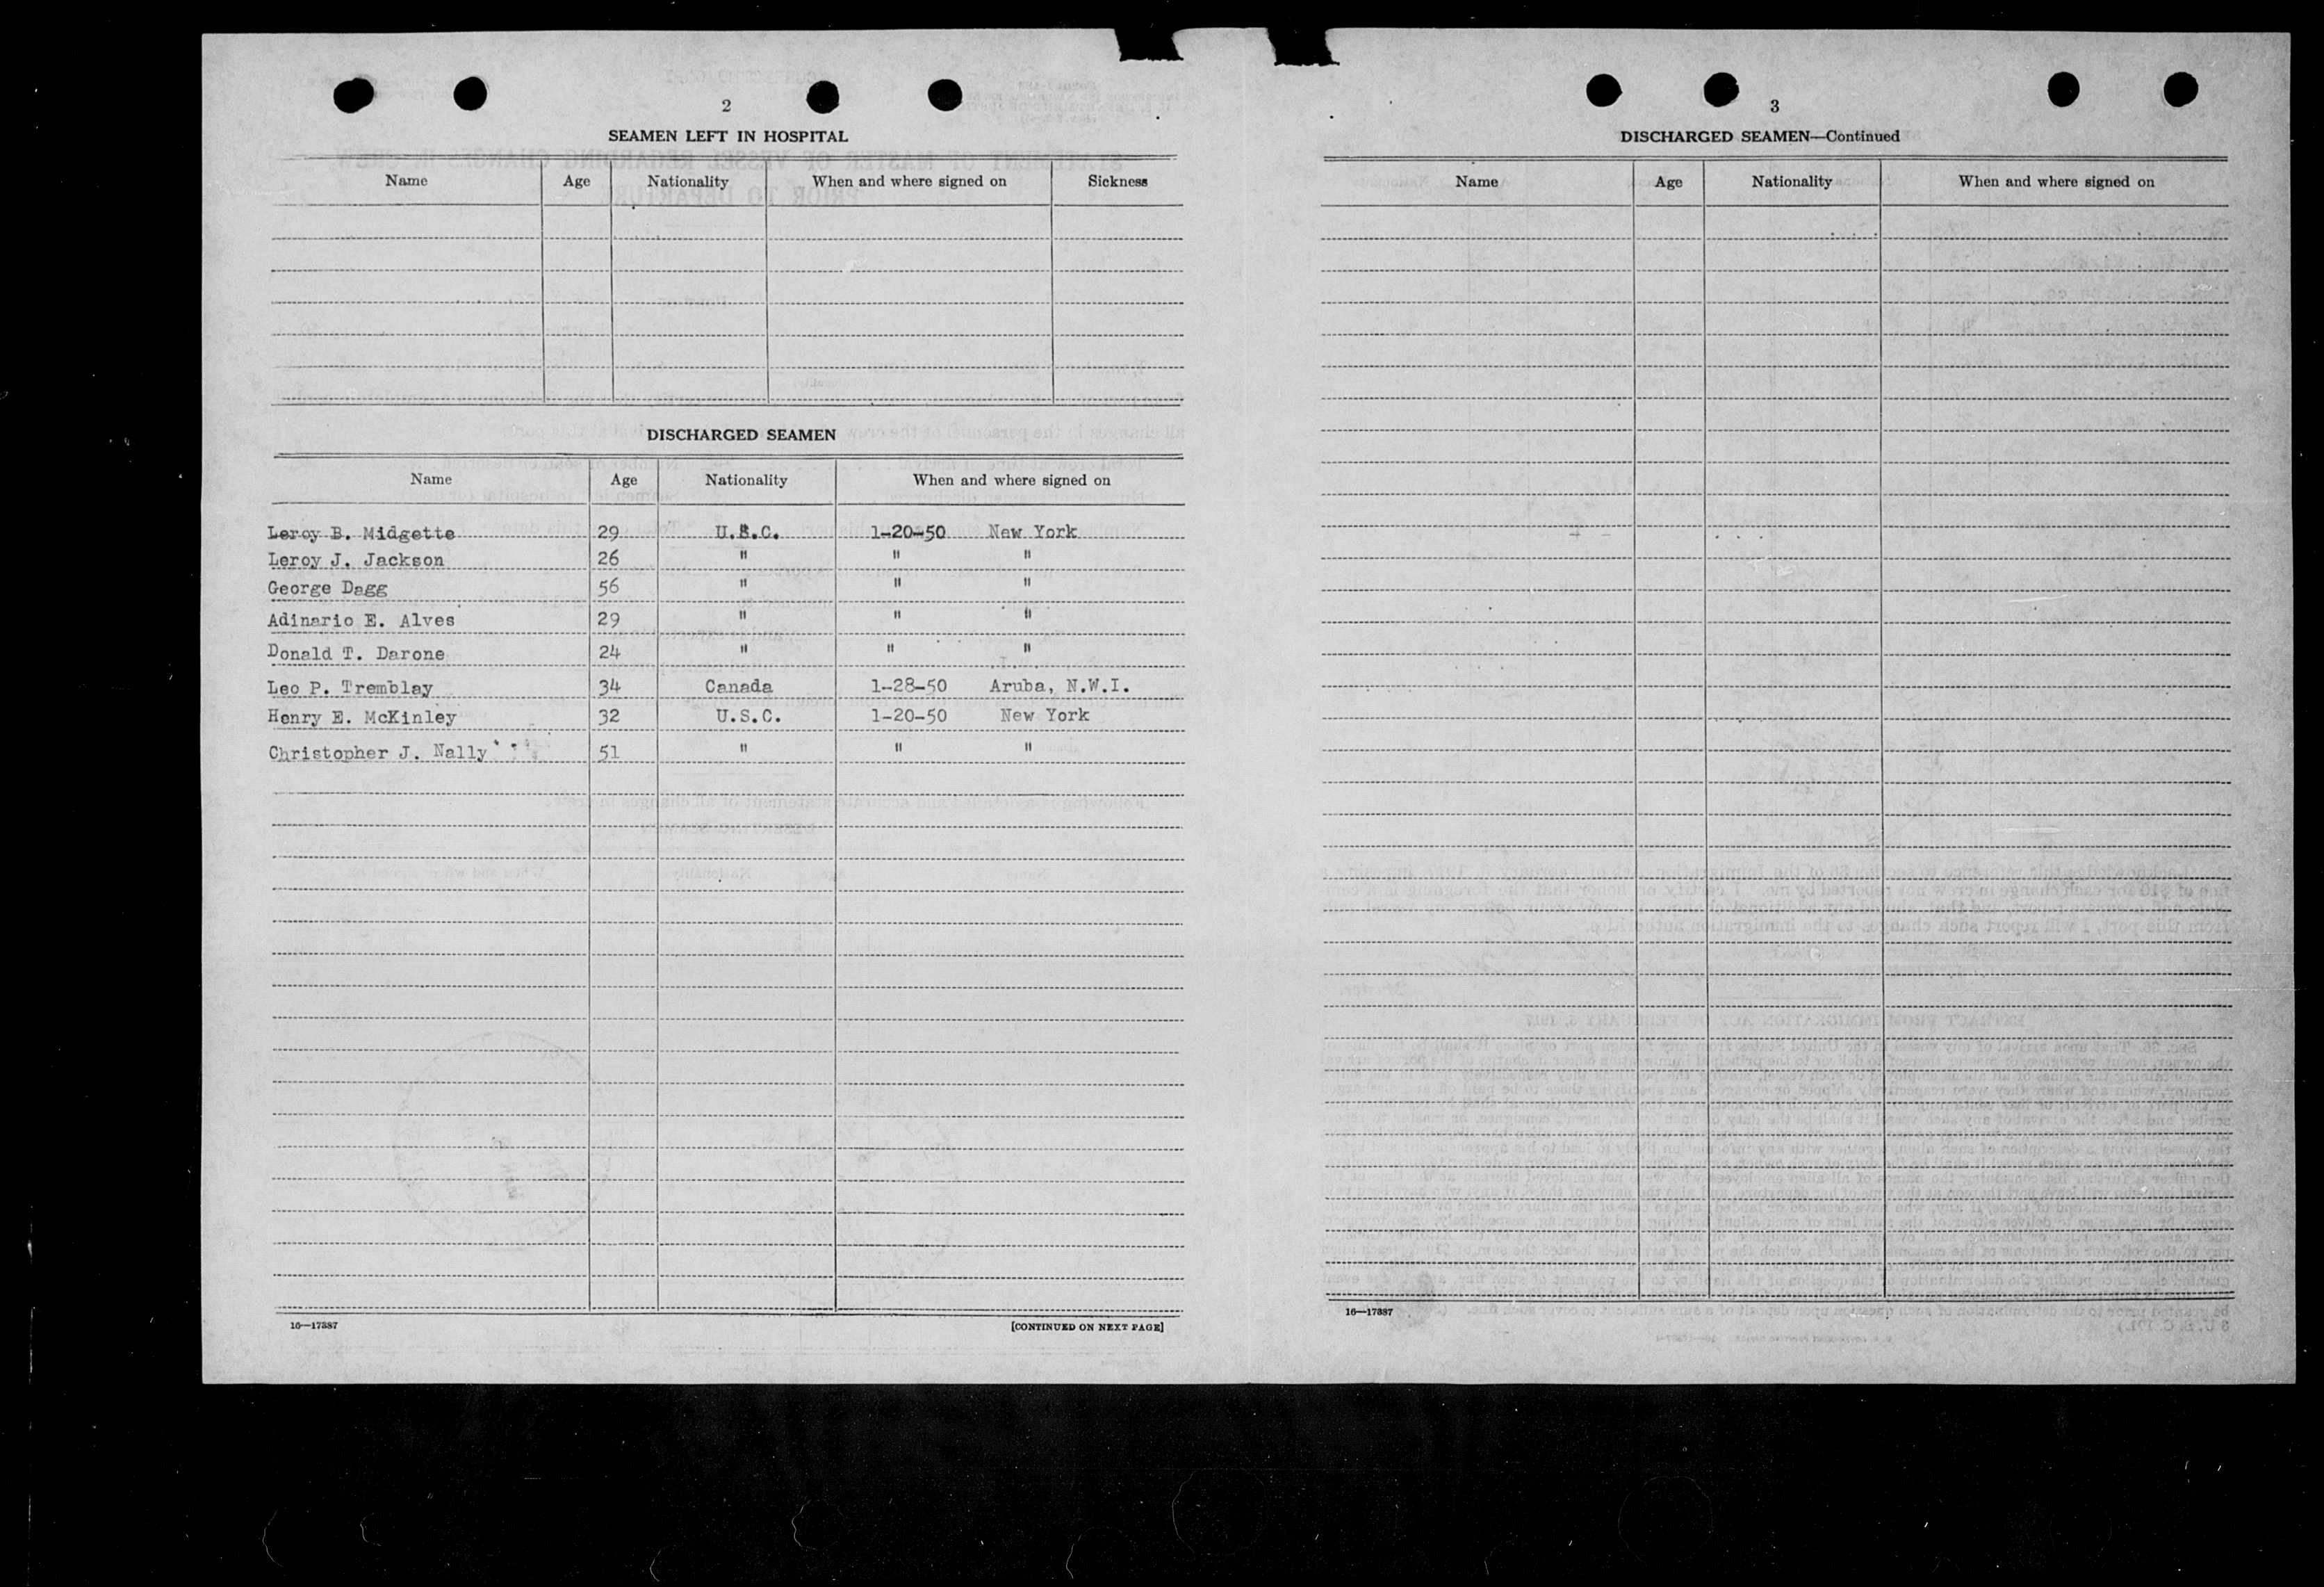 2
SEAMEN LEFT IN HOSPITAL
Name Age Nationality When and where signed on Sickness
DISCHARGED SEAMEN
Name Age Nationality When and where signed on
Leroy B. Midgette 29 U.S.C. 1-20-50 New York
Leroy J. Jackson 26 " " "
George Dagg 56 " " "
Adinario E. Alves 29 " " "
Donald T. Darone 24 " " "
Leo P. Tremblay 34 Canada 1-28-50 Aruba, N.W.I.
Henry E. McKinley 32 U.S.C. 1-20-50 New York
Christopher J. Nally 51 " " "
16—17387
[CONTINUED ON NEXT PAGE]
3
DISCHARGED SEAMEN—Continued
Name Age Nationality When and where signed on
16—17387